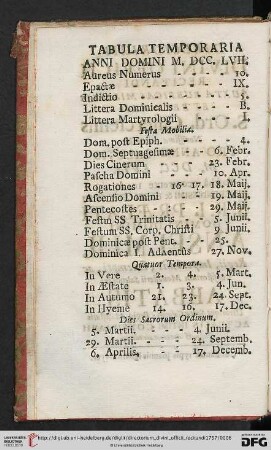 TABULA TEMPORARIA
ANNI DOMINI M. DCC. LVII.
Aureus Numerus - - 10.
Epactæ - - - IX.
Indictio - - - 5.
Littera Dominicalis - - B.
Littera Martyrologii - - I.
Festa Mobilia.
Dom. post Epiph. - - - 4.
Dom. Septuagesimæ - 6. Febr.
Dies Cinerum - - 23. Febr.
Pascha Domini - - 10. Apr.
Rogationes - 16. 17. 18. Maij.
Ascensio Domini - 19. Maij.
Pentecostes - - 29. Maij.
Festum SS. Trinitatis - 5. Junii.
Festum SS. Corp. Christi 9 Junii.
Dominicæ post Pent. - 25.
Dominica I. Adventus 27. Nov.
Quatuor Tempora.
In Vere 2. 4. 5. Mart.
In Æstate 1. 3. 4. Jun.
In Autumo 21. 23. 24. Sept.
In Hyeme 14. 16. 17. Dec.
Dies Sacrorum Ordinum.
5. Martii. - - 4. Junii.
29. Martii. - - 24. Septemb.
6. Aprilis. - - 17. Decemb.